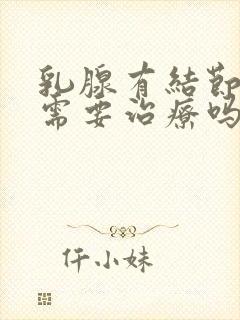 乳腺有結節
需要治療嗎
仟小妹